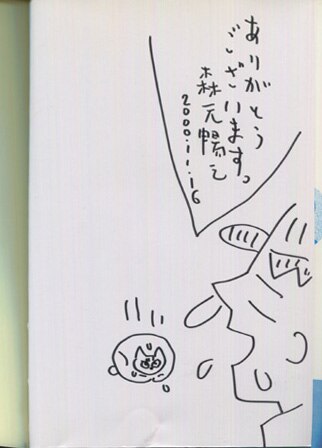 ありがとう
ございます。
森元暢之
2000.11.16